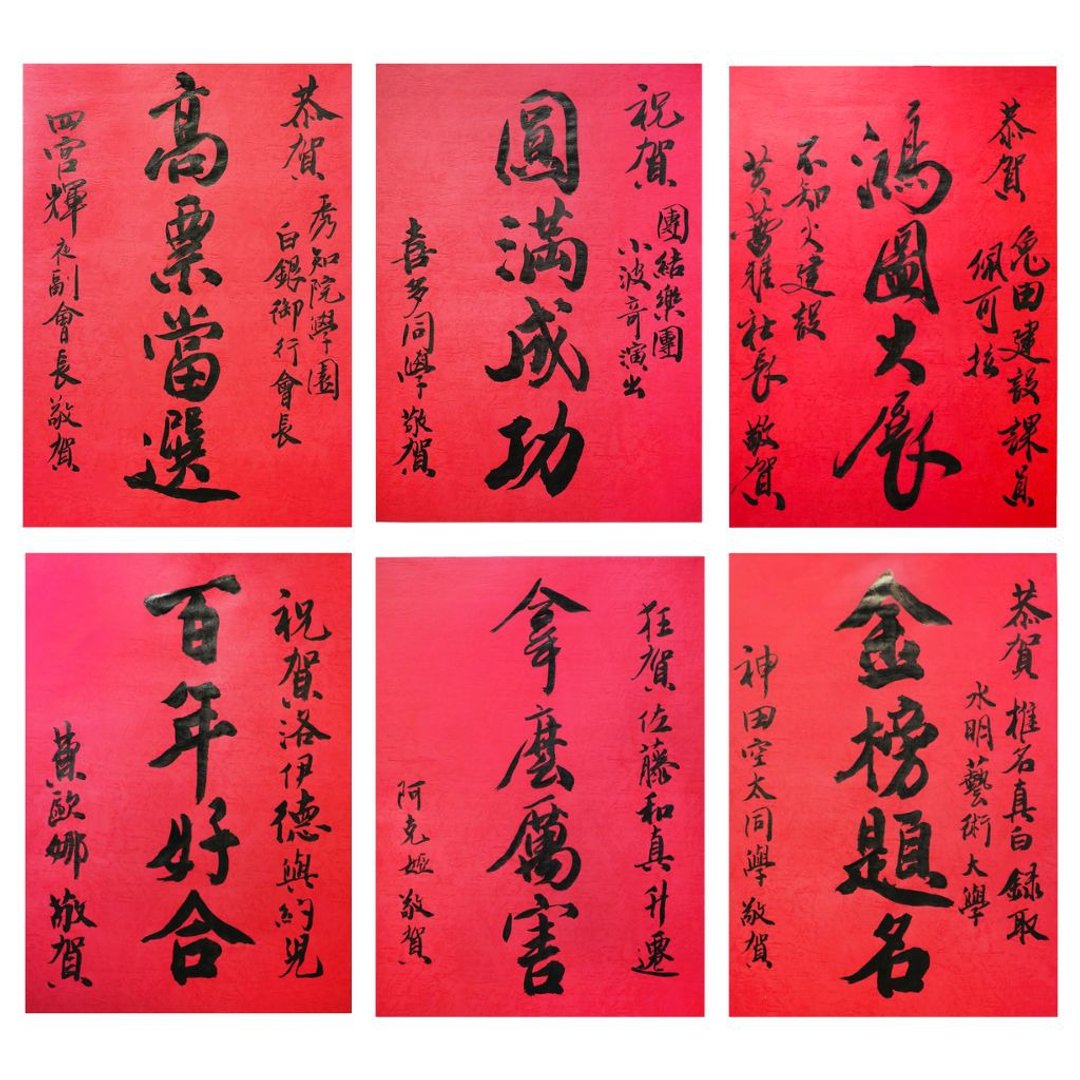 恭賀
秀知院學園
白銀御行會長
高票當選
四宮輝夜副會長敬賀
祝賀
團結樂團
小波奇演出
圓滿成功
喜多同學 敬賀
恭賀 兔田建設課員
佩可拉
鴻圖大展
不知火建設
芙蕾雅社長 敬賀
祝賀洛伊德與約兒
百年好合
費歐娜 敬賀
狂賀佐藤和真升遷
拿麼厲害
阿克婭 敬賀
恭賀 椎名真白錄取
水明藝術大學
金榜題名
神田空太同學敬賀